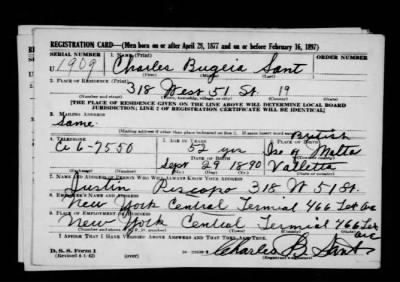 REGISTRATION CARD—(Men born on or after April 28, 1877 and on or before February 16, 1897)
SERIAL NUMBER 1. NAME (Print) ORDER NUMBER
U 1909 Charles Bugeia Sant
(First) (Middle) (Last)
2. PLACE OF RESIDENCE (Print)
318 West 51 St. 19
(Number and street) (Town, township, village, or city) (County) (State)
[THE PLACE OF RESIDENCE GIVEN ON THE LINE ABOVE WILL DETERMINE LOCAL BOARD
JURISDICTION; LINE 2 OF REGISTRATION CERTIFICATE WILL BE IDENTICAL]
3. MAILING ADDRESS
Same
[Mailing address if other than place indicated on line 2. If same insert word same]
4. TELEPHONE 5. AGE IN YEARS 6. PLACE OF BIRTH
British
Ci 6-7550 52 yrs Ise of Malta
DATE OF BIRTH
Sept 29 1890 Valletta
(Mo.) (Day) (Yr.)
7. NAME AND ADDRESS OF PERSON WHO WILL ALWAYS KNOW YOUR ADDRESS
Justin 318 W 51 St.
8. EMPLOYER'S NAME AND ADDRESS
New York Central Termial 466 Lex Ave
9. PLACE OF EMPLOYMENT OR BUSINESS
New York Central Termial 466 Lex
Ave
I AFFIRM THAT I HAVE VERIFIED ABOVE ANSWERS AND THAT THEY ARE TRUE.
D. S. S. Form 1
(Revised 4-1-42) (over) Charles B. Sant
(Registrant's signature)